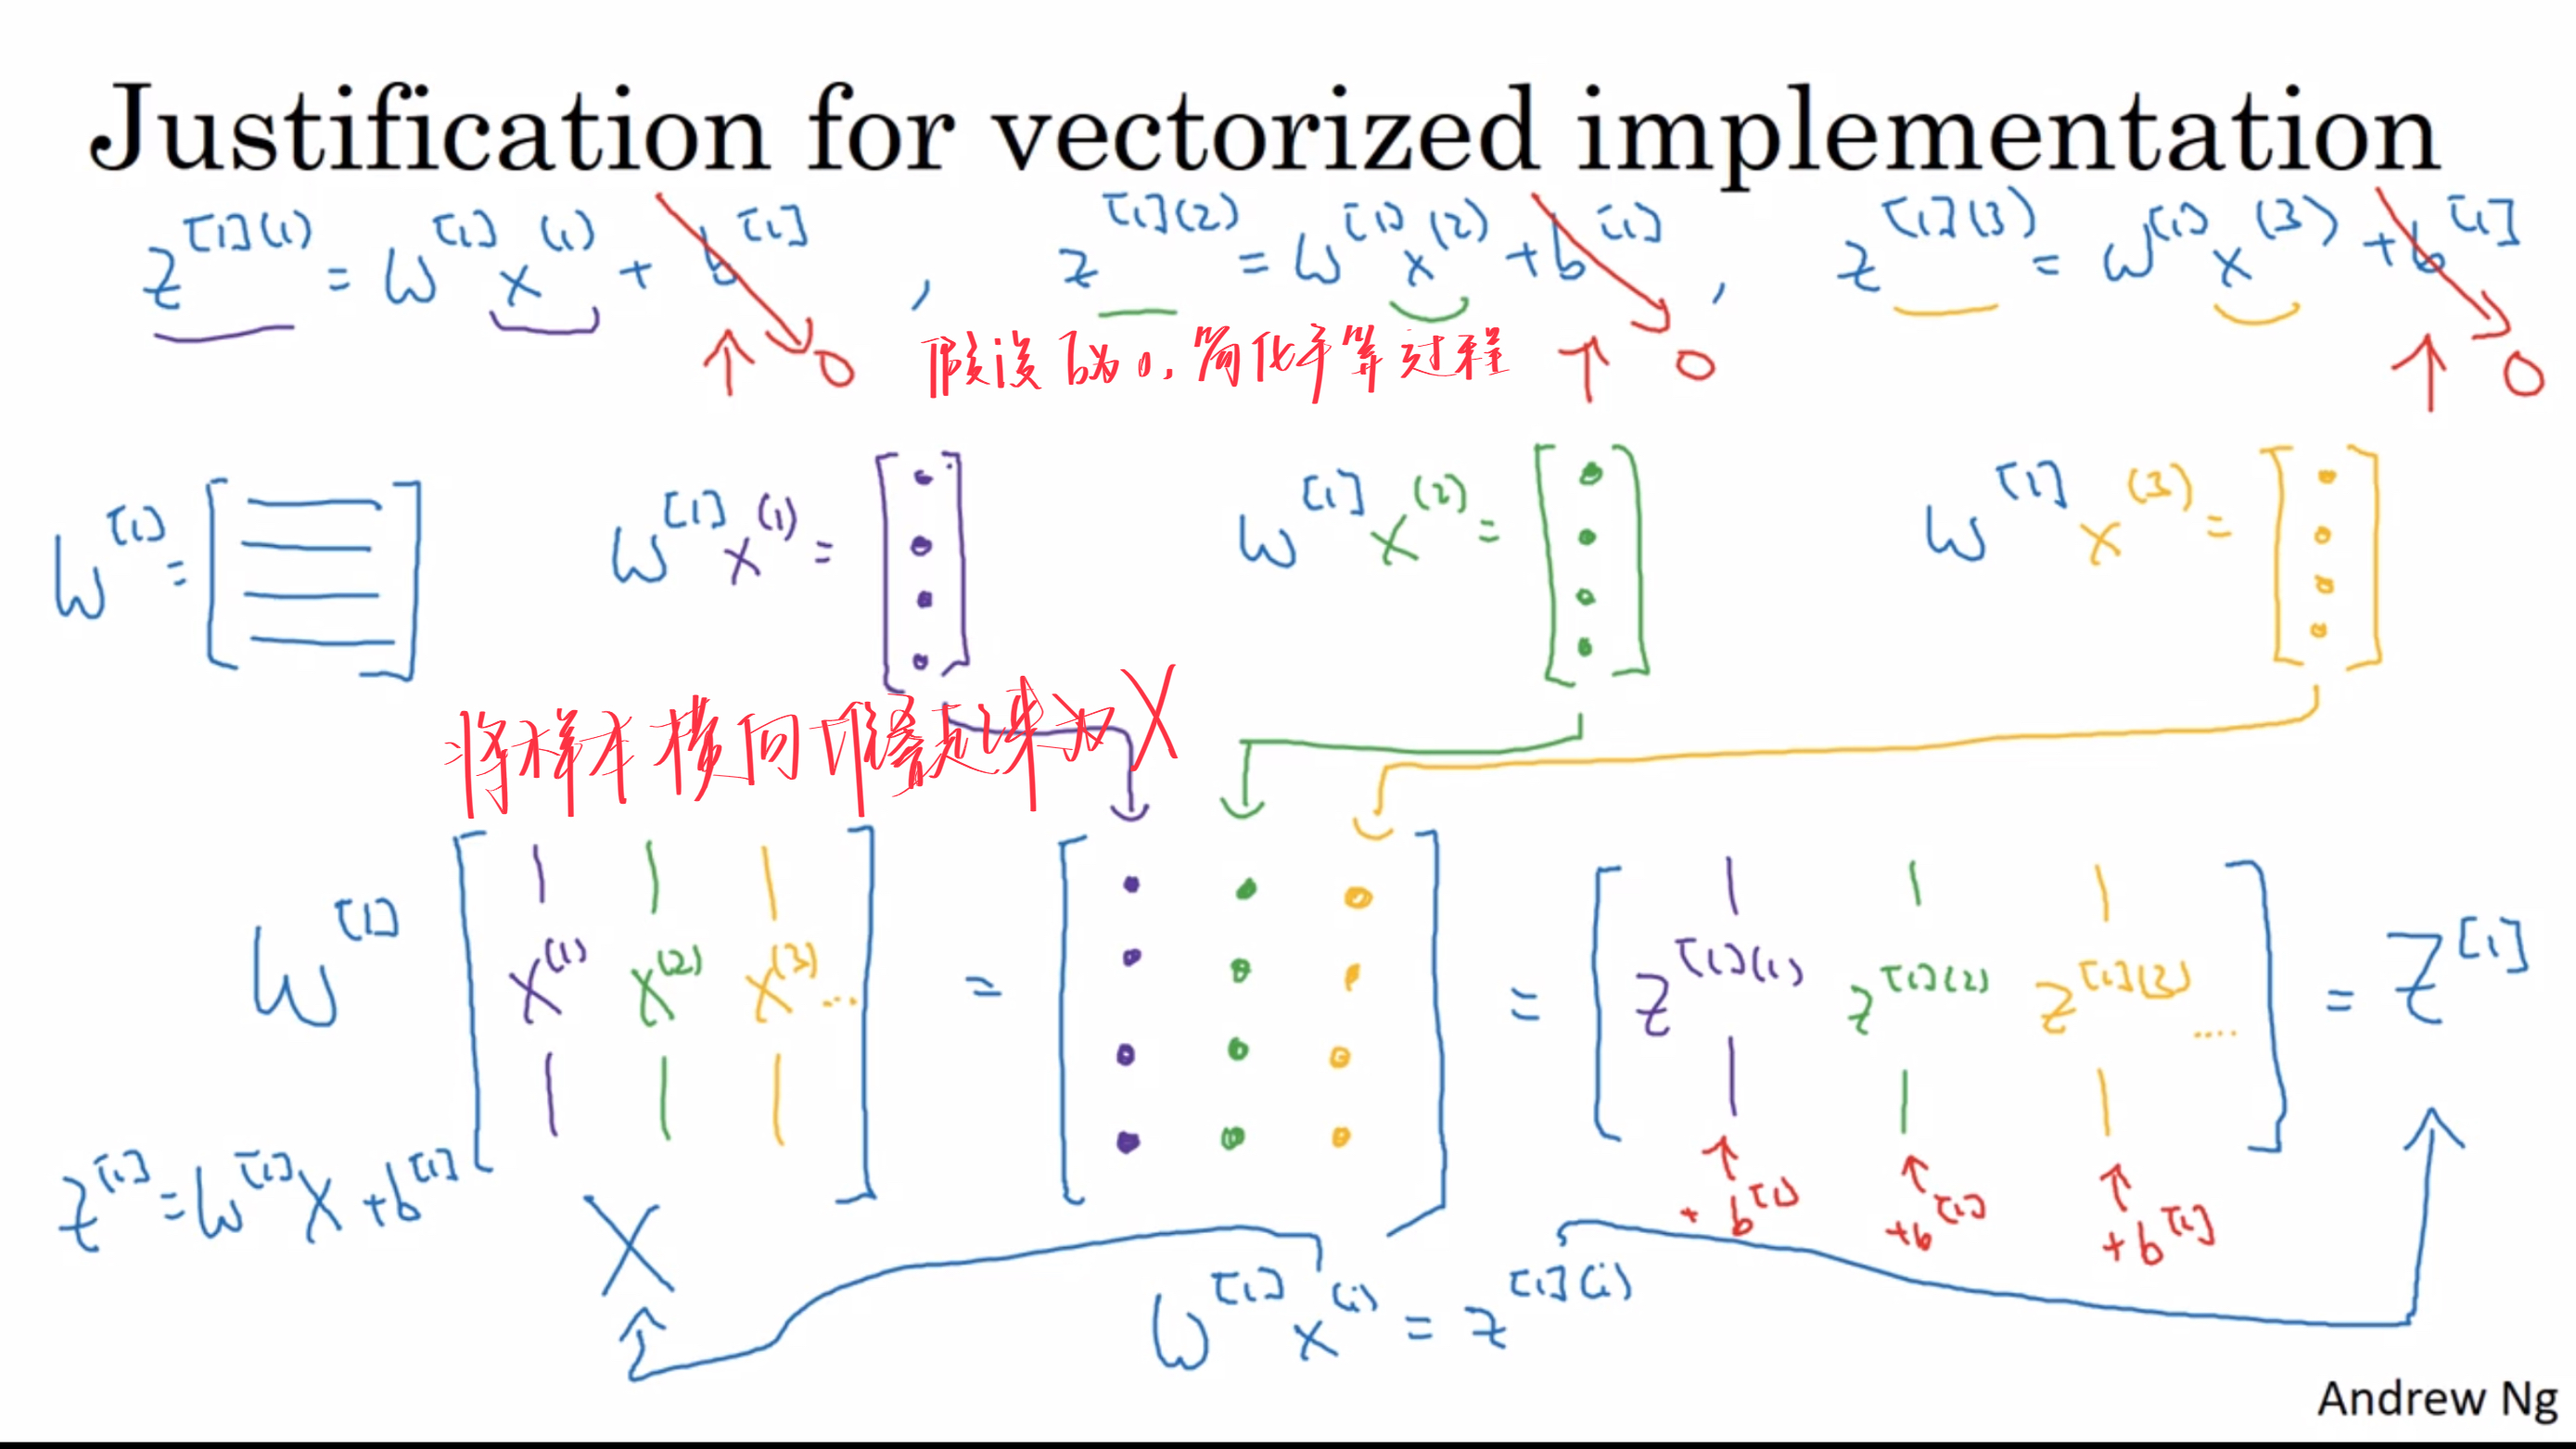 Justification for vectorized implementation
z^{[1](1)} = W^{[1]} x^{(1)} + b^{[1]} , z^{[1](2)} = W^{[1]} x^{(2)} + b^{[1]} , z^{[1](3)} = W^{[1]} x^{(3)} + b^{[1]}
0 假设b为0,简化手算过程 0 0
W^{[1]} = [ ] W^{[1]} x^{(1)} = [ ] W^{[1]} x^{(2)} = [ ] W^{[1]} x^{(3)} = [ ]
将样本横向堆叠起来为X
W^{[1]} [ x^{(1)} x^{(2)} x^{(3)} ... ] = [ ] = [ z^{[1](1)} z^{[1](2)} z^{[1](3)} .... ] = Z^{[1]}
z^{[1]} = W^{[1]} X + b^{[1]} X + b^{[1]} + b^{[1]} + b^{[1]}
W^{[1]} x^{(i)} = z^{[1](i)}
Andrew Ng